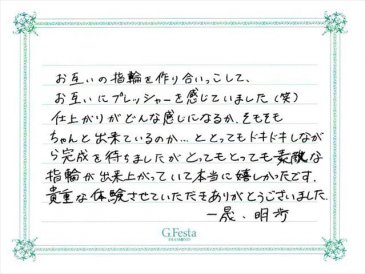 お互いの指輪を作り合いっこして、
お互いにプレッシャーを感じていました(笑)
仕上がりがどんな感じになるか、そもそも
ちゃんと出来ているのか…ととってもドキドキしなが
ら完成を待ちましたがとってもとっても素敵な
指輪が出来上がっていて本当に嬉しかったです。
貴重な体験させていただきありがとうございました。
一晟、明歩
G.Festa
DIAMOND